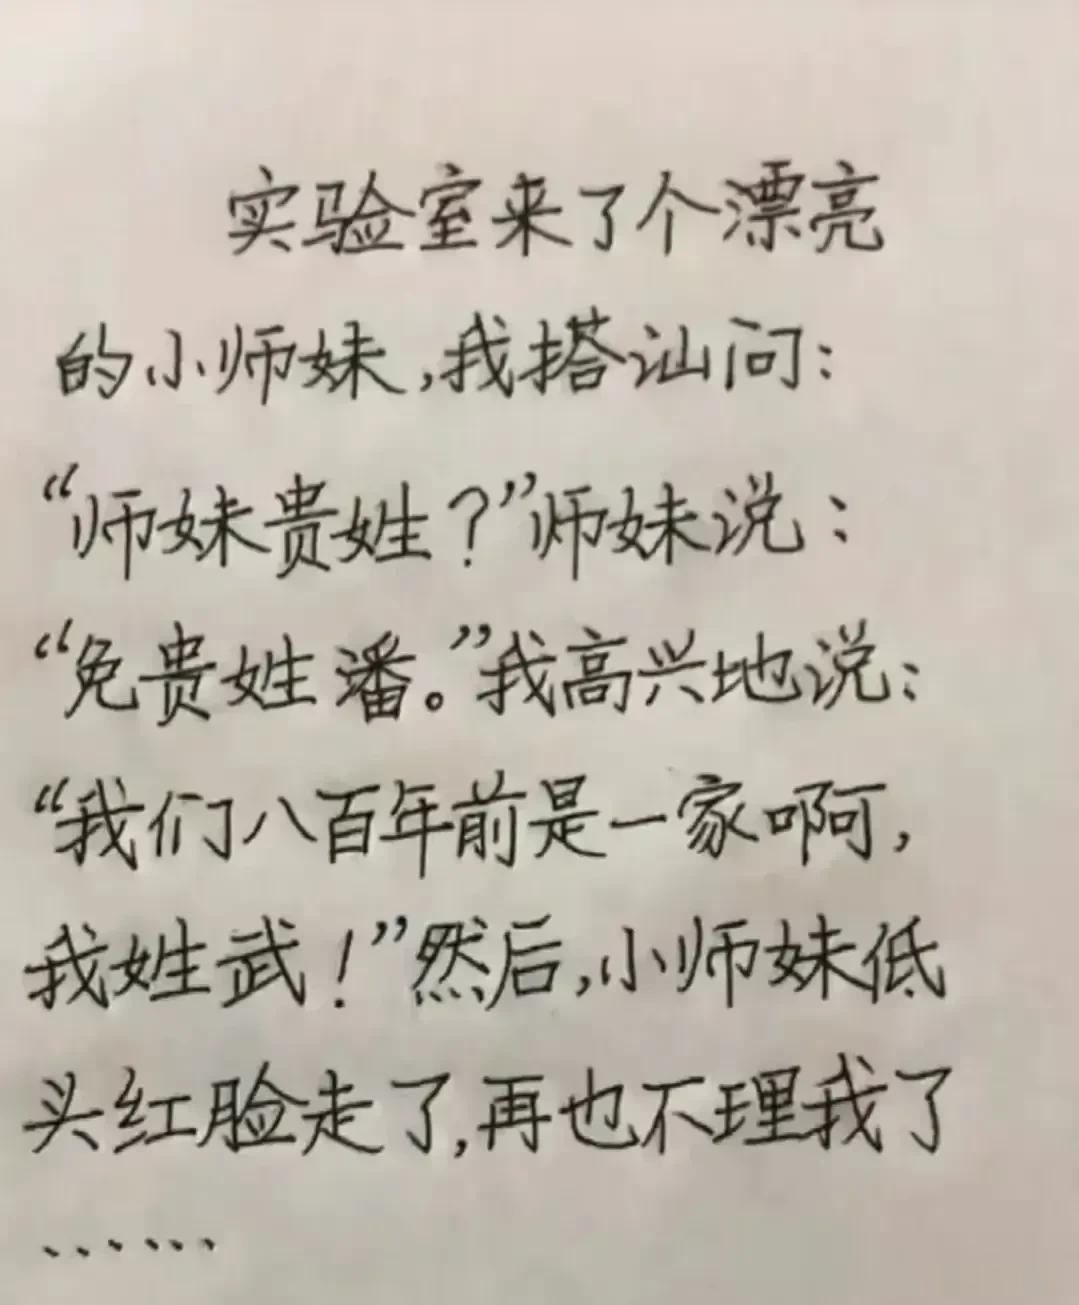 实验室来了个漂亮
的小师妹,我搭讪问:
“师妹贵姓?”师妹说:
“免贵姓潘。”我高兴地说:
“我们八百年前是一家啊,
我姓武!”然后,小师妹低
头红脸走了,再也不理我了
······